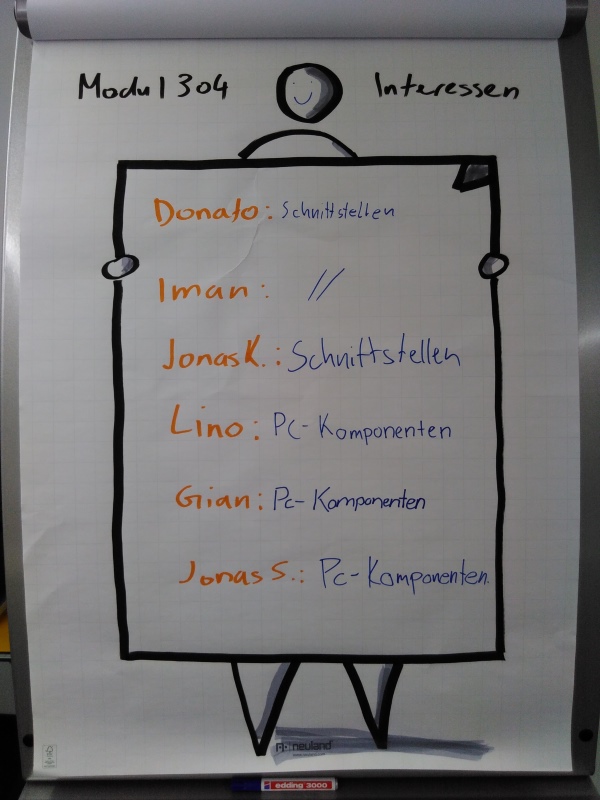 Modul 304 Interessen
Donato: Schnittstellen
Iman: //
Jonas K.: Schnittstellen
Lino: PC-Komponenten
Gian: Pc-Komponenten
Jonas S.: Pc-Komponenten.
neuland
edding 3000